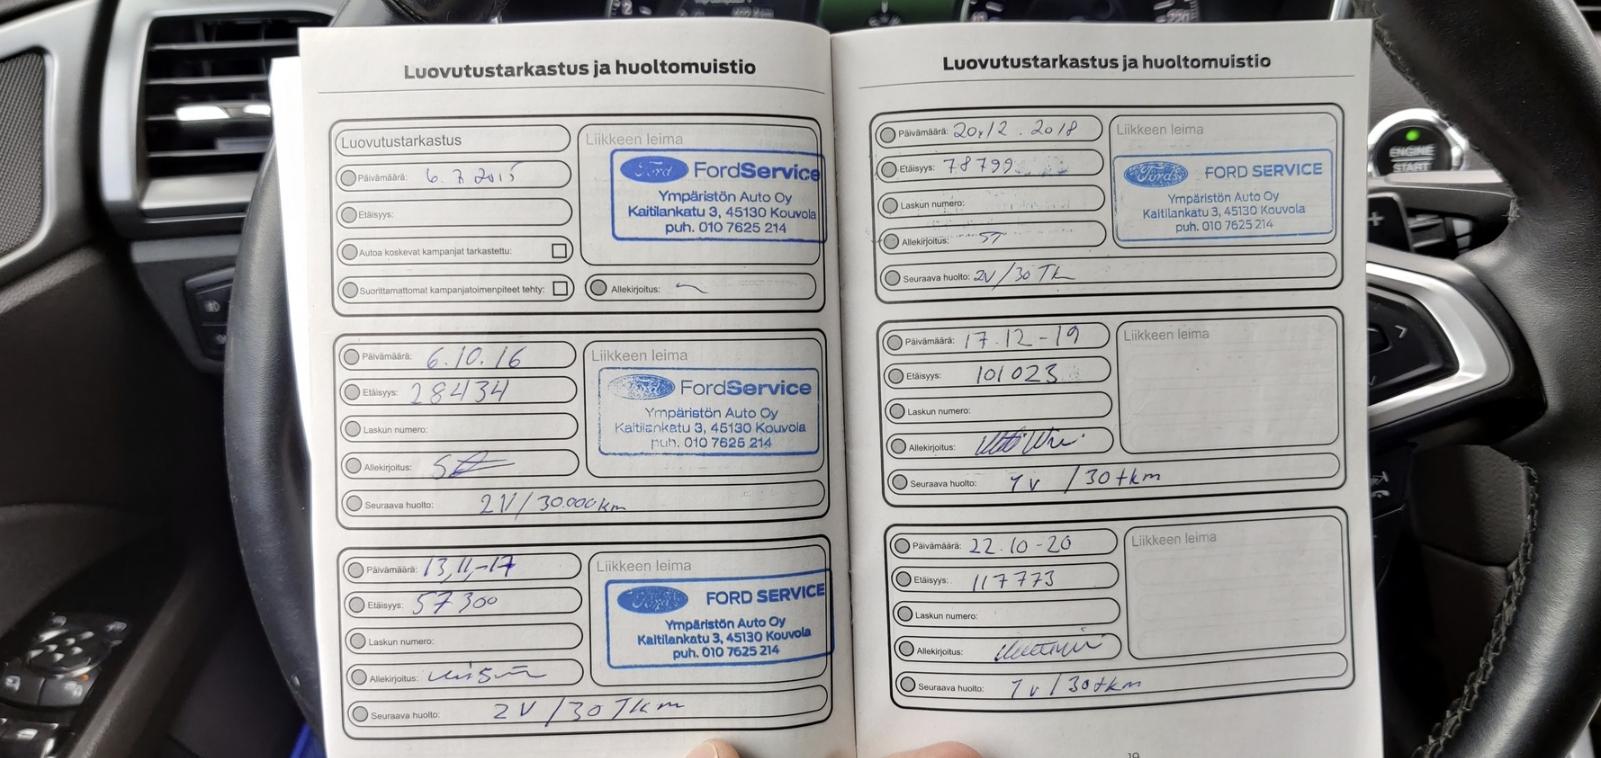 Luovutustarkastus ja huoltomuistio
Luovutustarkastus
Päivämäärä: 6.7.2015
Etäisyys:
Autoa koskevat kampanjat tarkastettu:
Suorittamattomat kampanjatoimenpiteet tehty:
Liikkeen leima
Ford FordService
Ympäristön Auto Oy
Kaitilankatu 3, 45130 Kouvola
puh. 010 7625 214
Allekirjoitus:
Päivämäärä: 6.10.16
Etäisyys: 28434
Laskun numero:
Allekirjoitus:
Seuraava huolto: 2V/30.000km
Liikkeen leima
Ford FordService
Ympäristön Auto Oy
Kaitilankatu 3, 45130 Kouvola
puh. 010 7625 214
Päivämäärä: 13,11,-17
Etäisyys: 57300
Laskun numero:
Allekirjoitus:
Seuraava huolto: 2V/30 Tkm
Liikkeen leima
Ford FORD SERVICE
Ympäristön Auto Oy
Kaitilankatu 3, 45130 Kouvola
puh. 010 7625 214
Luovutustarkastus ja huoltomuistio
Päivämäärä: 20.12.2018
Etäisyys: 78799
Laskun numero:
Allekirjoitus:
Seuraava huolto: 2V/30 Tk
Liikkeen leima
Ford FORD SERVICE
Ympäristön Auto Oy
Kaitilankatu 3, 45130 Kouvola
puh. 010 7625 214
Päivämäärä: 17.12-19
Etäisyys: 101023
Laskun numero:
Allekirjoitus:
Seuraava huolto: 1v /30tkm
Liikkeen leima
Päivämäärä: 22.10-20
Etäisyys: 117773
Laskun numero:
Allekirjoitus:
Seuraava huolto: 1v/30tkm
Liikkeen leima
ENGINE
START